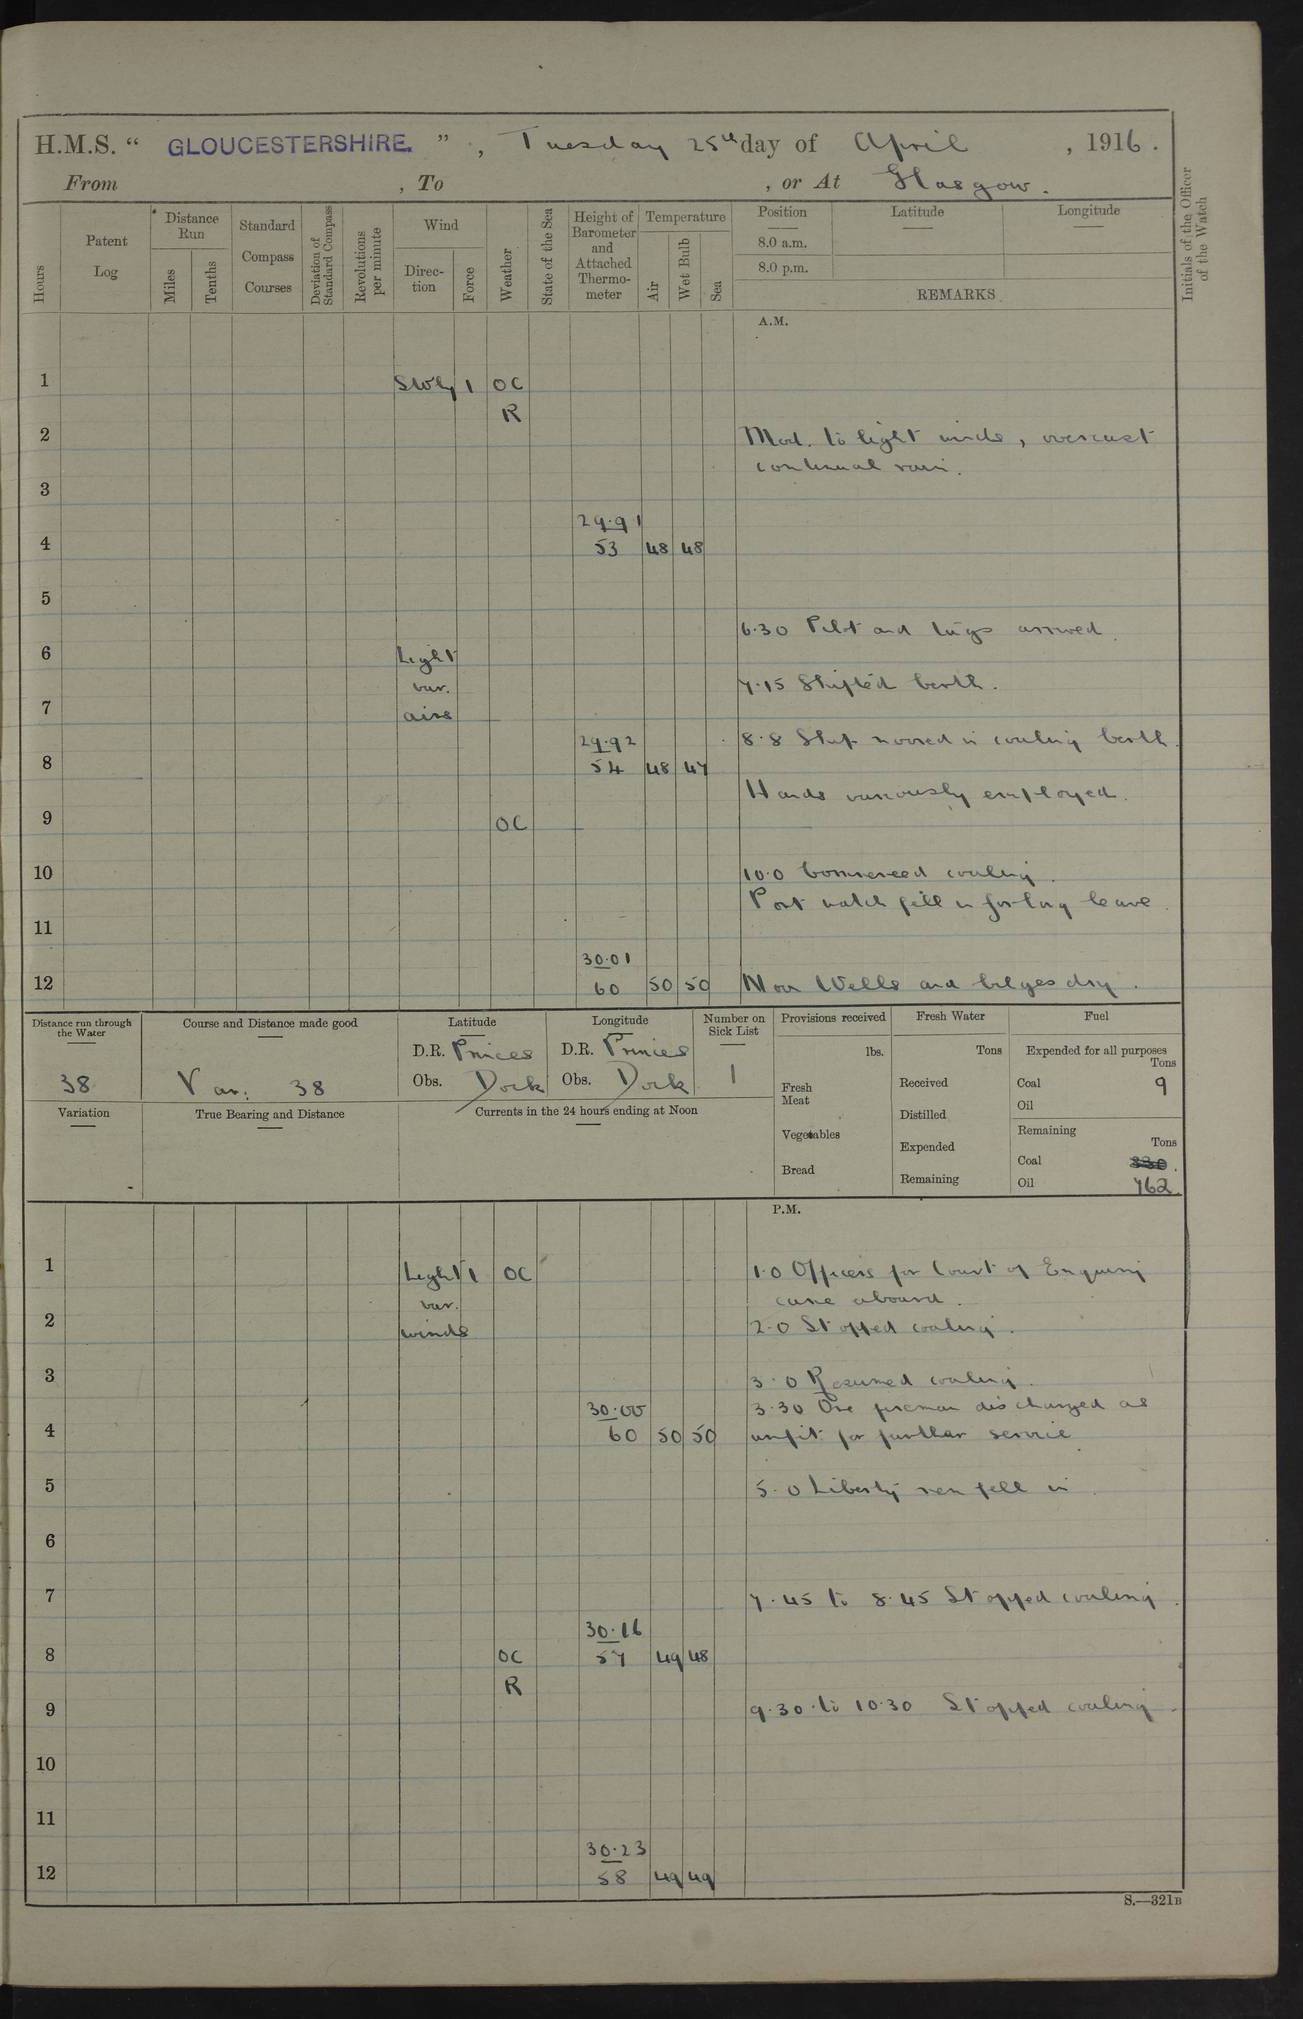 H.M.S. “ GLOUCESTERSHIRE. ” , Tuesday 25th day of April , 1916 .
From , To , or At Glasgow .
Hours
Patent Log
Distance Run
Miles
Tenths
Standard Compass Courses
Deviation of Standard Compass
Revolutions per minute
Wind
Direc- tion
Force
Weather
State of the Sea
Height of Barometer and Attached Thermo- meter
Temperature
Air
Wet Bulb
Sea
Position Latitude Longitude
8.0 a.m.
8.0 p.m.
REMARKS
Initials of the Officer of the Watch
A.M.
1 SWly 1 OC
R
2 Mod. to light winds, overcast
continual rain.
3
29.91
4 53 48 48
5
6.30 Pilot and tugs arrived.
6 Light
var. 7.15 Shifted berth.
7 airs
29.92 8.8 Ship moored in coaling berth.
8 54 48 47
Hands variously employed.
9 OC
10 10.0 Commenced coaling.
Port watch fell in for long leave.
11
30.01
12 60 50 50 Noon Wells and bilges dry.
Distance run through the Water
38
Course and Distance made good
Var. 38
Latitude
D.R. Princes
Obs. Dock
Longitude
D.R. Princes
Obs. Dock
Number on Sick List
1
Provisions received
lbs.
Fresh Meat
Vegetables
Bread
Fresh Water
Tons
Received
Distilled
Expended
Remaining
Fuel
Expended for all purposes
Tons
Coal 9
Oil
Remaining
Tons
Coal 330.
Oil 762
Variation
True Bearing and Distance
Currents in the 24 hours ending at Noon
P.M.
1 Light 1 OC 1.0 Officers for Court of Enquiry
var. came aboard.
2 winds 2.0 Stopped coaling.
3 3.0 Resumed coaling.
30.00 3.30 One fireman discharged as
4 60 50 50 unfit for further service.
5 5.0 Liberty men fell in.
6
7 7.45 to 8.45 Stopped coaling.
30.16
8 OC 57 49 48
R
9 9.30 to 10.30 Stopped coaling.
10
11
30.23
12 58 49 49
S.—321B